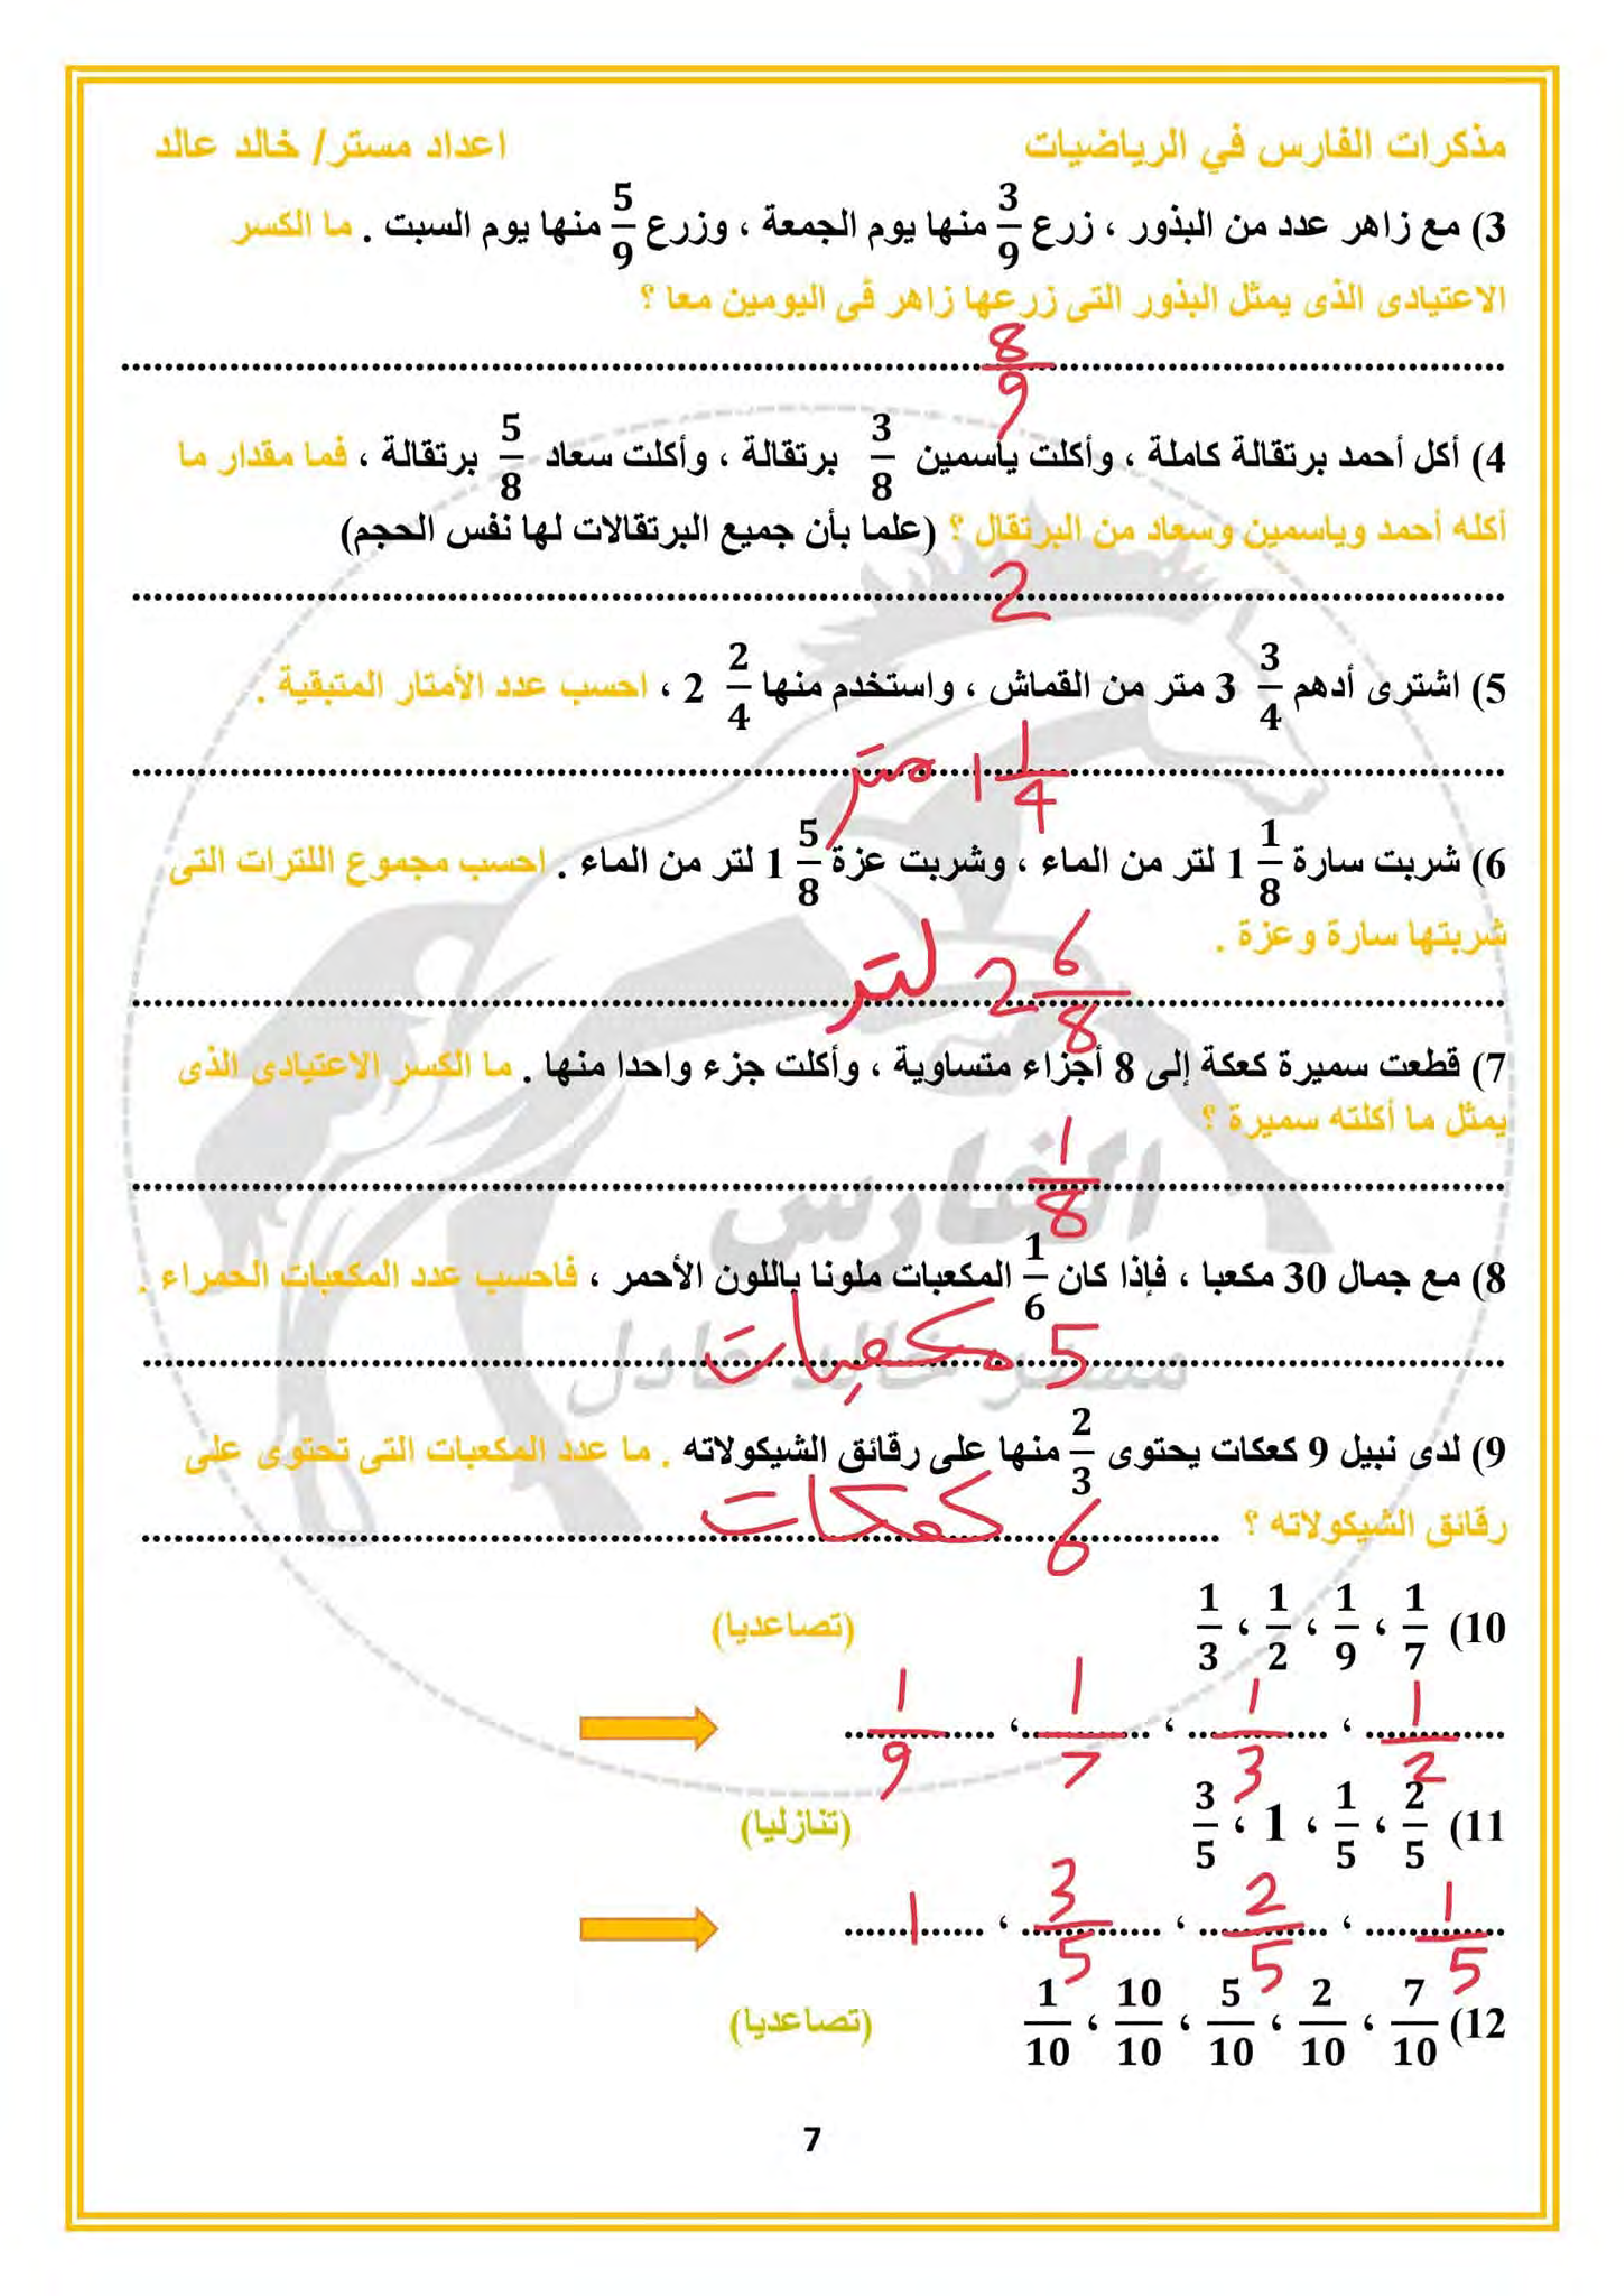 مذكرات الفارس في الرياضيات اعداد مستر/ خالد عالد
3) مع زاهر عدد من البذور ، زرع 3/9 منها يوم الجمعة ، وزرع 5/9 منها يوم السبت . ما الكسر
الاعتيادى الذى يمثل البذور التى زرعها زاهر فى اليومين معا ؟
8/9
4) أكل أحمد برتقالة كاملة ، وأكلت ياسمين 3/8 برتقالة ، وأكلت سعاد 5/8 برتقالة ، فما مقدار ما
أكله أحمد وياسمين وسعاد من البرتقال ؟ (علما بأن جميع البرتقالات لها نفس الحجم)
2
5) اشترى أدهم 3 3/4 متر من القماش ، واستخدم منها 2 2/4 ، احسب عدد الأمتار المتبقية .
1 1/4 متر
6) شربت سارة 1 1/8 لتر من الماء ، وشربت عزة 1 5/8 لتر من الماء . احسب مجموع اللترات التى
شربتها سارة وعزة .
2 6/8 لتر
7) قطعت سميرة كعكة إلى 8 أجزاء متساوية ، وأكلت جزء واحدا منها . ما الكسر الاعتيادى الذى
يمثل ما أكلته سميرة ؟
1/8
الفارس
8) مع جمال 30 مكعبا ، فإذا كان 1/6 المكعبات ملونا باللون الأحمر ، فاحسب عدد المكعبات الحمراء .
5 مكعبات
مستر خالد عادل
9) لدى نبيل 9 كعكات يحتوى 2/3 منها على رقائق الشيكولاته . ما عدد المكعبات التى تحتوى على
رقائق الشيكولاته ؟ 6 كعكات
10) 1/7 ، 1/9 ، 1/2 ، 1/3 (تصاعديا)
1/2 ، 1/3 ، 1/7 ، 1/9
11) 2/5 ، 1/5 ، 1 ، 3/5 (تنازليا)
1/5 ، 2/5 ، 3/5 ، 1
12) 7/10 ، 2/10 ، 5/10 ، 10/10 ، 1/10 (تصاعديا)
7